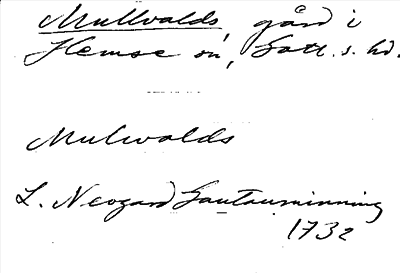 Mullvalds, gård i
Hemse sn, Gotl. s. hd.
Mulwalds
L. Neogard Gautauminning
1732